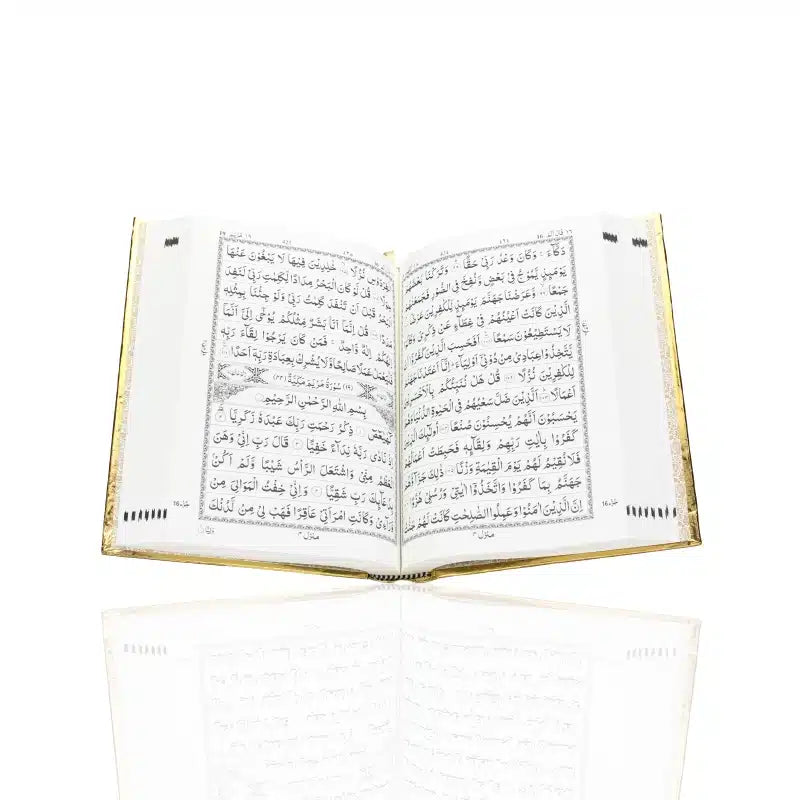 ١٦ قال الم ١٦
دَكَّآءَ ۚ وَكَانَ وَعْدُ رَبِّىْ حَقًّا ۙ وَتَرَكْنَا بَعْضَهُمْ
يَوْمَئِذٍ يَّمُوْجُ فِىْ بَعْضٍ وَّنُفِخَ فِى الصُّوْرِ فَجَمَعْنٰهُمْ
جَمْعًا ۙ وَّعَرَضْنَا جَهَنَّمَ يَوْمَئِذٍ لِّلْكٰفِرِيْنَ
الَّذِيْنَ كَانَتْ اَعْيُنُهُمْ فِىْ غِطَآءٍ عَنْ ذِكْرِىْ وَكَانُوْا
لَا يَسْتَطِيْعُوْنَ سَمْعًا اَفَحَسِبَ الَّذِيْنَ كَفَرُوْٓا
يَّتَّخِذُوْا عِبَادِىْ مِنْ دُوْنِىْٓ اَوْلِيَآءَ ؕ اِنَّآ اَعْتَدْنَا جَهَنَّمَ
لِلْكٰفِرِيْنَ نُزُلًا قُلْ هَلْ نُنَبِّئُكُمْ بِالْاَخْسَرِيْنَ
اَعْمَالًا ؕ اَلَّذِيْنَ ضَلَّ سَعْيُهُمْ فِى الْحَيٰوةِ الدُّنْيَا
يَحْسَبُوْنَ اَنَّهُمْ يُحْسِنُوْنَ صُنْعًا اُولٰٓئِكَ الَّذِيْنَ
كَفَرُوْا بِاٰيٰتِ رَبِّهِمْ وَلِقَآئِهٖ فَحَبِطَتْ اَعْمَالُهُمْ
فَلَا نُقِيْمُ لَهُمْ يَوْمَ الْقِيٰمَةِ وَزْنًا ذٰلِكَ جَزَآؤُهُمْ
جَهَنَّمُ بِمَا كَفَرُوْا وَاتَّخَذُوْٓا اٰيٰتِىْ وَرُسُلِىْ هُزُوًا
اِنَّ الَّذِيْنَ اٰمَنُوْا وَعَمِلُوا الصّٰلِحٰتِ كَانَتْ لَهُمْ جَنّٰتُ
منزل ٣
16
١٩ مريم ١٩
الْفِرْدَوْسِ نُزُلًا ۙ خٰلِدِيْنَ فِيْهَا لَا يَبْغُوْنَ عَنْهَا
حِوَلًا قُلْ لَّوْ كَانَ الْبَحْرُ مِدَادًا لِّكَلِمٰتِ رَبِّىْ لَنَفِدَ
الْبَحْرُ قَبْلَ اَنْ تَنْفَدَ كَلِمٰتُ رَبِّىْ وَلَوْ جِئْنَا بِمِثْلِهٖ
مَدَدًا قُلْ اِنَّمَآ اَنَا بَشَرٌ مِّثْلُكُمْ يُوْحٰٓى اِلَىَّ اَنَّمَآ
اِلٰهُكُمْ اِلٰهٌ وَّاحِدٌ ۚ فَمَنْ كَانَ يَرْجُوْا لِقَآءَ رَبِّهٖ
فَلْيَعْمَلْ عَمَلًا صَالِحًا وَّلَا يُشْرِكْ بِعِبَادَةِ رَبِّهٖٓ اَحَدًا
(١٩) سُوْرَةُ مَرْيَمَ مَكِّيَّةٌ (٤٤)
بِسْمِ اللّٰهِ الرَّحْمٰنِ الرَّحِيْمِ
كٓهٰيٰعٓصٓ ذِكْرُ رَحْمَتِ رَبِّكَ عَبْدَهٗ زَكَرِيَّا
اِذْ نَادٰى رَبَّهٗ نِدَآءً خَفِيًّا قَالَ رَبِّ اِنِّىْ وَهَنَ
الْعَظْمُ مِنِّىْ وَاشْتَعَلَ الرَّاْسُ شَيْبًا وَّلَمْ اَكُنْۢ
بِدُعَآئِكَ رَبِّ شَقِيًّا وَاِنِّىْ خِفْتُ الْمَوَالِىَ مِنْ
وَّرَآءِىْ وَكَانَتِ امْرَاَتِىْ عَاقِرًا فَهَبْ لِىْ مِنْ لَّدُنْكَ
منزل ٤
16